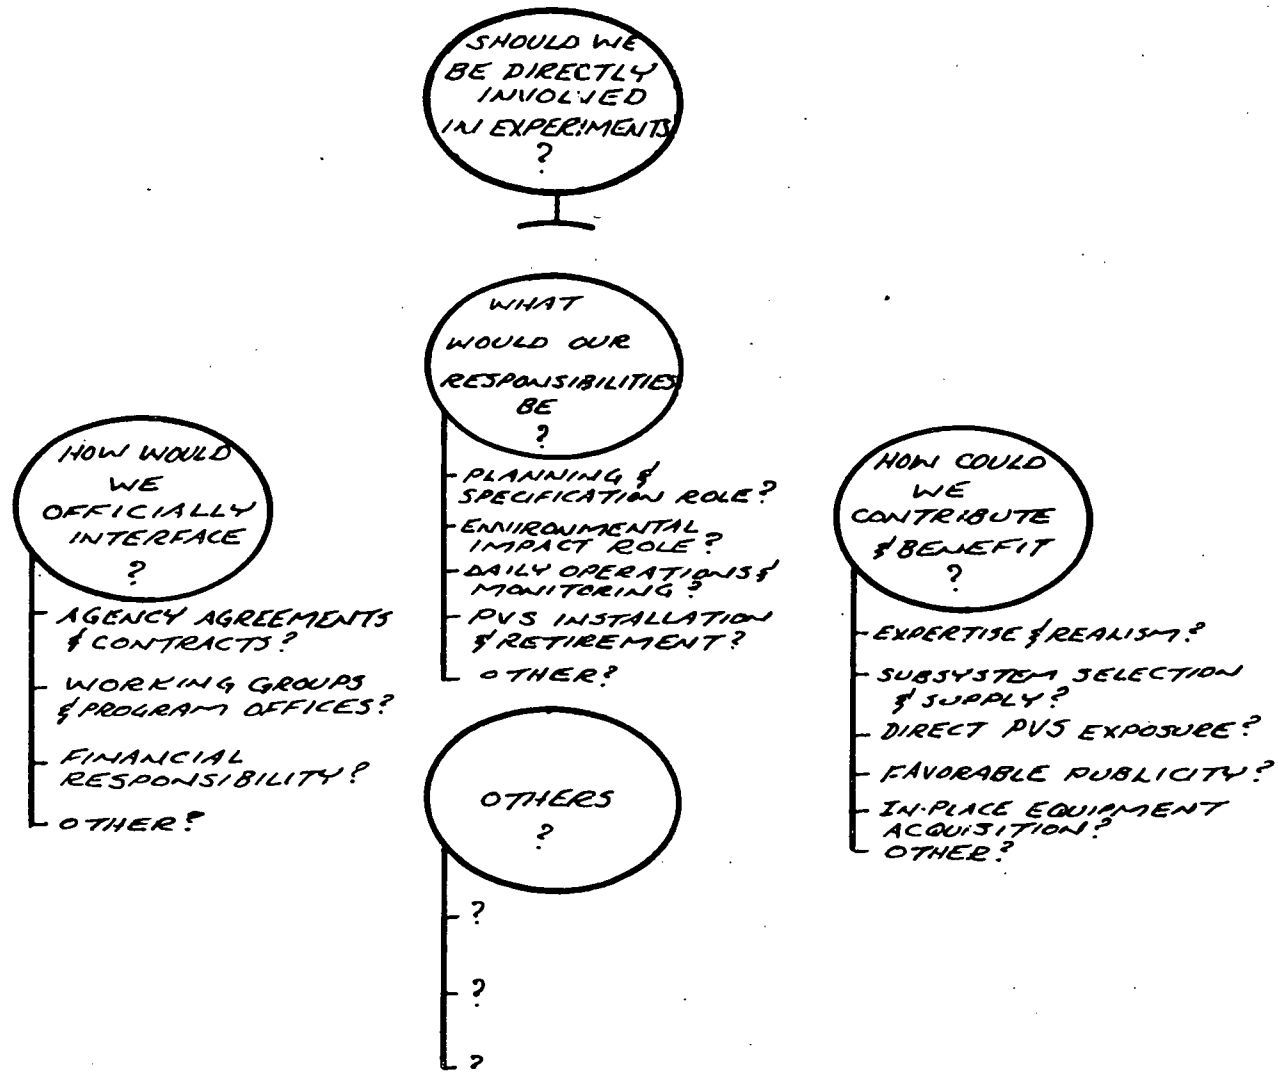 SHOULD WE
BE DIRECTLY
INVOLVED
IN EXPERIMENTS
?
WHAT
WOULD OUR
RESPONSIBILITIES
BE
?
PLANNING &
SPECIFICATION ROLE?
ENVIRONMENTAL
IMPACT ROLE?
DAILY OPERATIONS &
MONITORING?
PVS INSTALLATION
& RETIREMENT?
OTHER?
HOW WOULD
WE
OFFICIALLY
INTERFACE
?
AGENCY AGREEMENTS
& CONTRACTS?
WORKING GROUPS
& PROGRAM OFFICES?
FINANCIAL
RESPONSIBILITY?
OTHER?
HOW COULD
WE
CONTRIBUTE
& BENEFIT
?
EXPERTISE & REALISM?
SUBSYSTEM SELECTION
& SUPPLY?
DIRECT PVS EXPOSURE?
FAVORABLE PUBLICITY?
IN-PLACE EQUIPMENT
ACQUISITION?
OTHER?
OTHERS
?
?
?
?